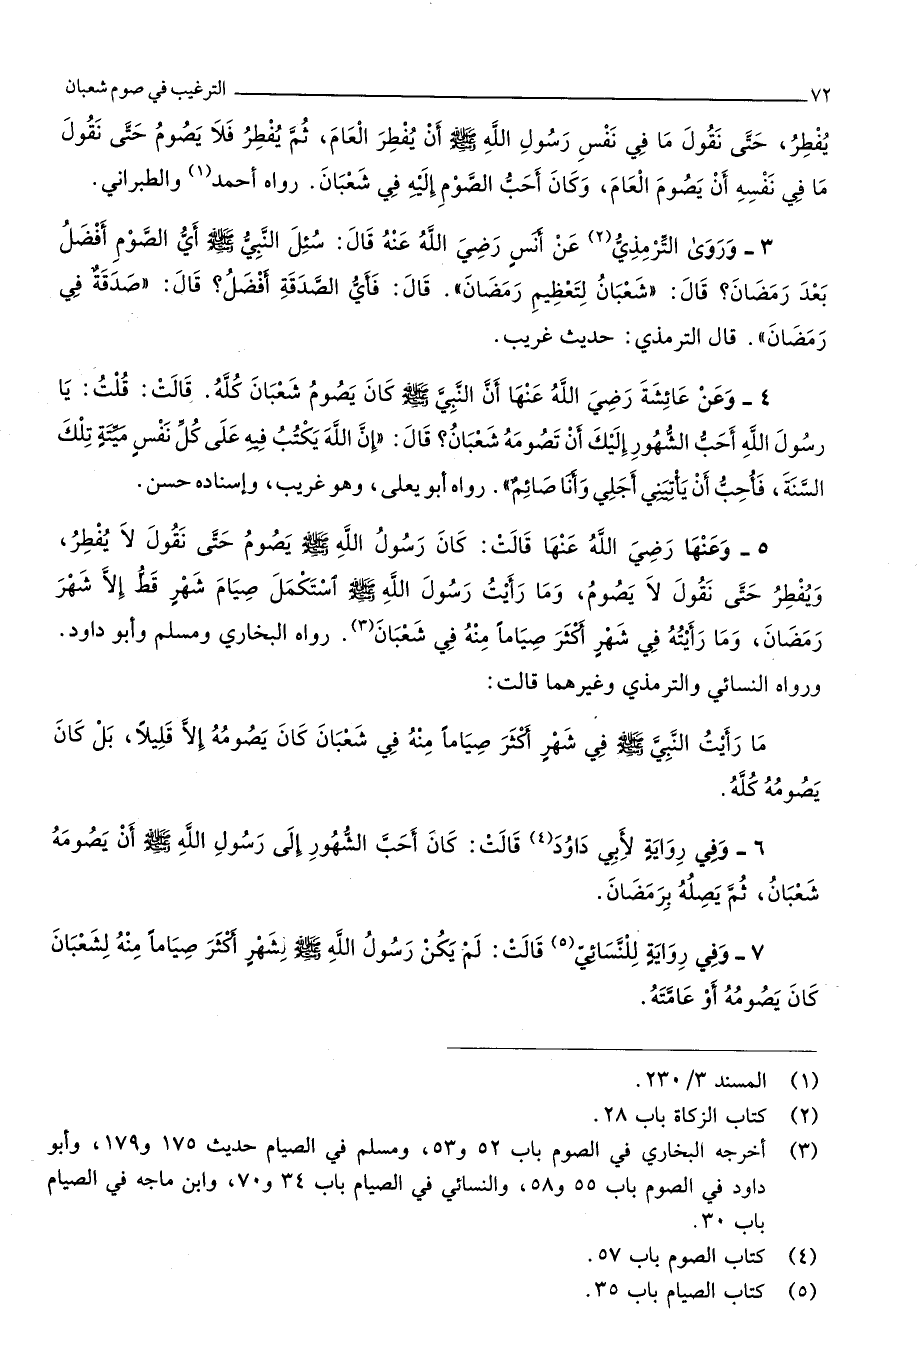 ٧٢ الترغيب في صوم شعبان
يُفْطِرُ، حَتَّى نَقُولَ مَا فِي نَفْسِ رَسُولِ اللَّهِ ﷺ أَنْ يُفْطِرَ الْعَامَ، ثُمَّ يُفْطِرُ فَلَا يَصُومُ حَتَّى نَقُولَ
مَا فِي نَفْسِهِ أَنْ يَصُومَ الْعَامَ، وَكَانَ أَحَبُّ الصَّوْمِ إِلَيْهِ فِي شَعْبَانَ. رواه أحمد(١) والطبراني.
٣ ـ وَرَوَىٰ التِّرْمِذِيُّ(٢) عَنْ أَنَسٍ رَضِيَ اللَّهُ عَنْهُ قَالَ: سُئِلَ النَّبِيُّ ﷺ أَيُّ الصَّوْمِ أَفْضَلُ
بَعْدَ رَمَضَانَ؟ قَالَ: «شَعْبَانُ لِتَعْظِيمِ رَمَضَانَ». قَالَ: فَأَيُّ الصَّدَقَةِ أَفْضَلُ؟ قَالَ: «صَدَقَةٌ فِي
رَمَضَانَ». قال الترمذي: حديث غريب.
٤ ـ وَعَنْ عَائِشَةَ رَضِيَ اللَّهُ عَنْهَا أَنَّ النَّبِيَّ ﷺ كَانَ يَصُومُ شَعْبَانَ كُلَّهُ. قَالَتْ: قُلْتُ: يَا
رسُولَ اللَّهِ أَحَبُّ الشُّهُورِ إِلَيْكَ أَنْ تَصُومَهُ شَعْبَانُ؟ قَالَ: «إِنَّ اللَّهَ يَكْتُبُ فِيهِ عَلَى كُلِّ نَفْسٍ مَيِّتَةٍ تِلْكَ
السَّنَةَ، فَأُحِبُّ أَنْ يَأْتِيَنِي أَجَلِي وَأَنَا صَائِمٌ». رواه أبو يعلى، وهو غريب، وإسناده حسن.
٥ ـ وَعَنْهَا رَضِيَ اللَّهُ عَنْهَا قَالَتْ: كَانَ رَسُولُ اللَّهِ ﷺ يَصُومُ حَتَّى نَقُولَ لاَ يُفْطِرُ،
وَيُفْطِرُ حَتَّى نَقُولَ لاَ يَصُومُ، وَمَا رَأَيْتُ رَسُولَ اللَّهِ ﷺ ٱسْتَكْمَلَ صِيَامَ شَهْرٍ قَطُّ إِلاَّ شَهْرَ
رَمَضَانَ، وَمَا رَأَيْتُهُ فِي شَهْرٍ أَكْثَرَ صِيَاماً مِنْهُ فِي شَعْبَانَ(٣). رواه البخاري ومسلم وأبو داود.
ورواه النسائي والترمذي وغيرهما قالت:
مَا رَأَيْتُ النَّبِيَّ ﷺ فِي شَهْرٍ أَكْثَرَ صِيَاماً مِنْهُ فِي شَعْبَانَ كَانَ يَصُومُهُ إِلاَّ قَلِيلاً، بَلْ كَانَ
يَصُومُهُ كُلَّهُ.
٦ ـ وَفِي رِوَايَةٍ لأَبِي دَاوُدَ(٤) قَالَتْ: كَانَ أَحَبَّ الشُّهُورِ إِلَى رَسُولِ اللَّهِ ﷺ أَنْ يَصُومَهُ
شَعْبَانُ، ثُمَّ يَصِلُهُ بِرَمَضَانَ.
٧ ـ وَفِي رِوَايَةٍ لِلْنَّسَائِيّ(٥) قَالَتْ: لَمْ يَكُنْ رَسُولُ اللَّهِ ﷺ لِشَهْرٍ أَكْثَرَ صِيَاماً مِنْهُ لِشَعْبَانَ
كَانَ يَصُومُهُ أَوْ عَامَّتَهُ.
(١) المسند ٣/ ٢٣٠.
(٢) كتاب الزكاة باب ٢٨.
(٣) أخرجه البخاري في الصوم باب ٥٢ و٥٣، ومسلم في الصيام حديث ١٧٥ و١٧٩، وأبو
داود في الصوم باب ٥٥ و٥٨، والنسائي في الصيام باب ٣٤ و٧٠، وابن ماجه في الصيام
باب ٣٠.
(٤) كتاب الصوم باب ٥٧.
(٥) كتاب الصيام باب ٣٥.